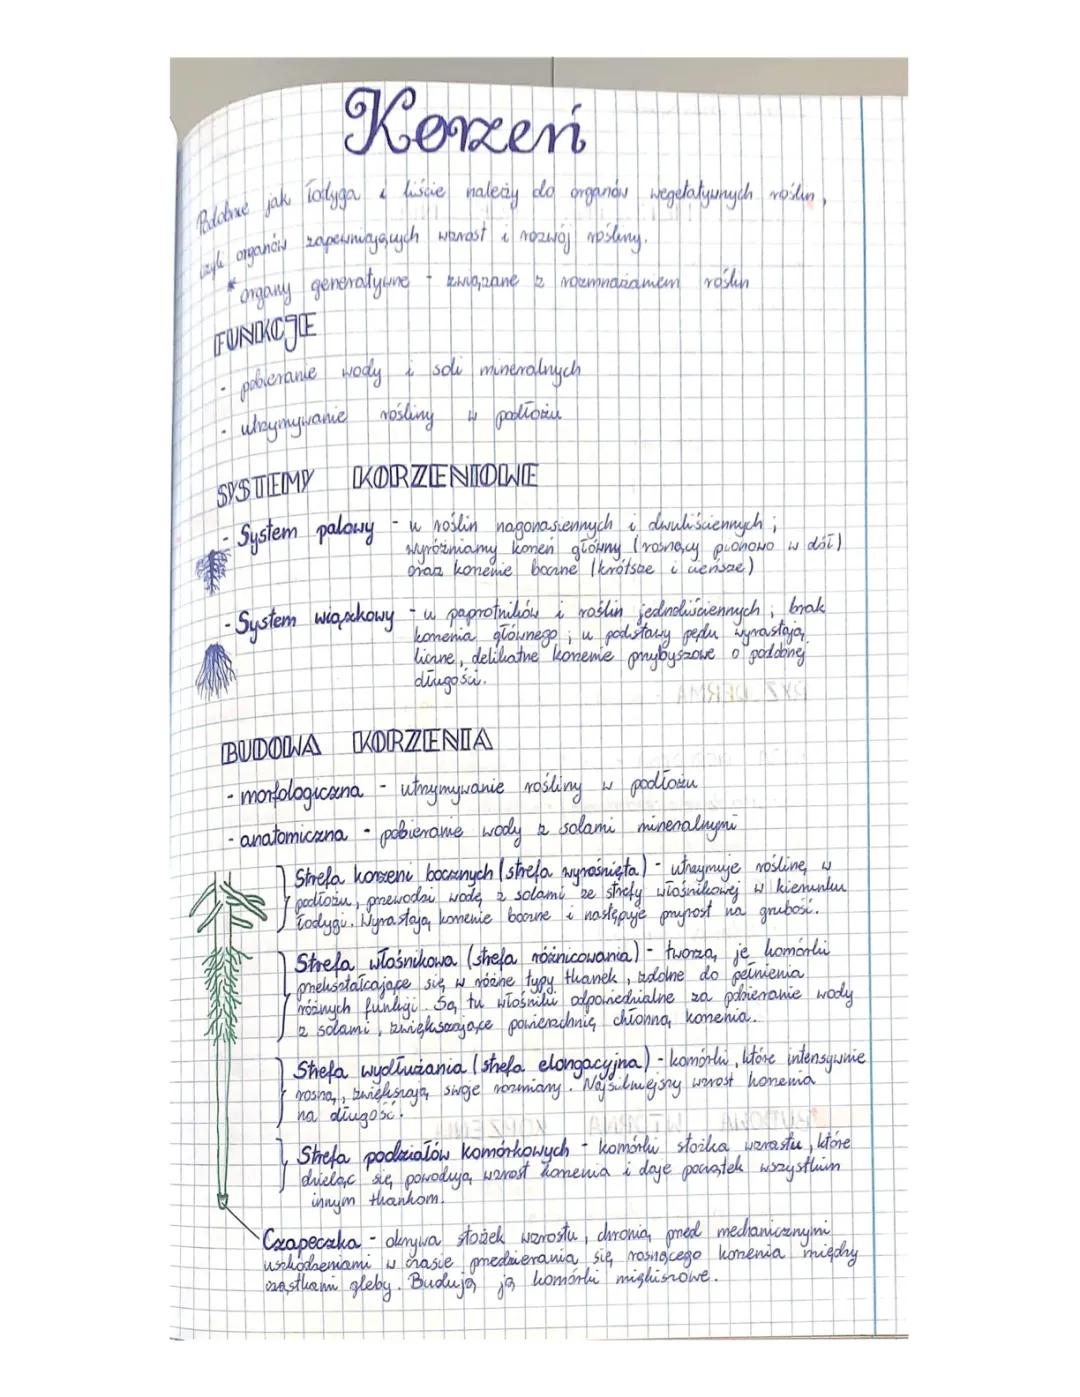 Korzeń
Podobnie jak łodyga i liście należy do organów wegetatywnych roślin,
czyli organów zapewniających wzrost i rozwój rośliny.
* organy generatywne - związane z rozmnażaniem roślin
FUNKCJE
- pobieranie wody i soli mineralnych
- utrzymywanie rośliny w podłożu
SYSTEMY KORZENIOWE
- System palowy - u roślin nagonasiennych i dwuliściennych;
wyróżniamy korzeń główny (rosnący pionowo w dół)
oraz korzenie boczne (krótsze i cieńsze)
- System wiązkowy - u paprotników i roślin jednoliściennych; brak
korzenia głównego; u podstawy pędu wyrastają
liczne, delikatne korzenie przybyszowe o podobnej
długości.
BUDOWA KORZENIA
- morfologiczna - utrzymywanie rośliny w podłożu
- anatomiczna - pobieranie wody z solami mineralnymi
Strefa korzeni bocznych (strefa wyrośnięta) - utrzymuje roślinę w
podłożu, przewodzi wodę z solami ze strefy włośnikowej w kierunku
łodygi. Wyrastają korzenie boczne i następuje przyrost na grubość.
Strefa włośnikowa (strefa różnicowania) - tworzą je komórki
przekształcające się w różne typy tkanek, zdolne do pełnienia
różnych funkcji. Są tu włośniki odpowiedzialne za pobieranie wody
z solami, zwiększające powierzchnię chłonną korzenia.
Strefa wydłużania (strefa elongacyjna) - komórki, które intensywnie
rosną, zwiększają swoje rozmiary. Najsilniejszy wzrost korzenia
na długość.
Strefa podziałów komórkowych - komórki stożka wzrostu, które
dzieląc się powodują wzrost korzenia i daje początek wszystkim
innym tkankom.
Czapeczka - okrywa stożek wzrostu, chronią przed mechanicznymi
uszkodzeniami w czasie przedzierania się rosnącego korzenia między
cząstkami gleby. Budują ją komórki miękiszowe.